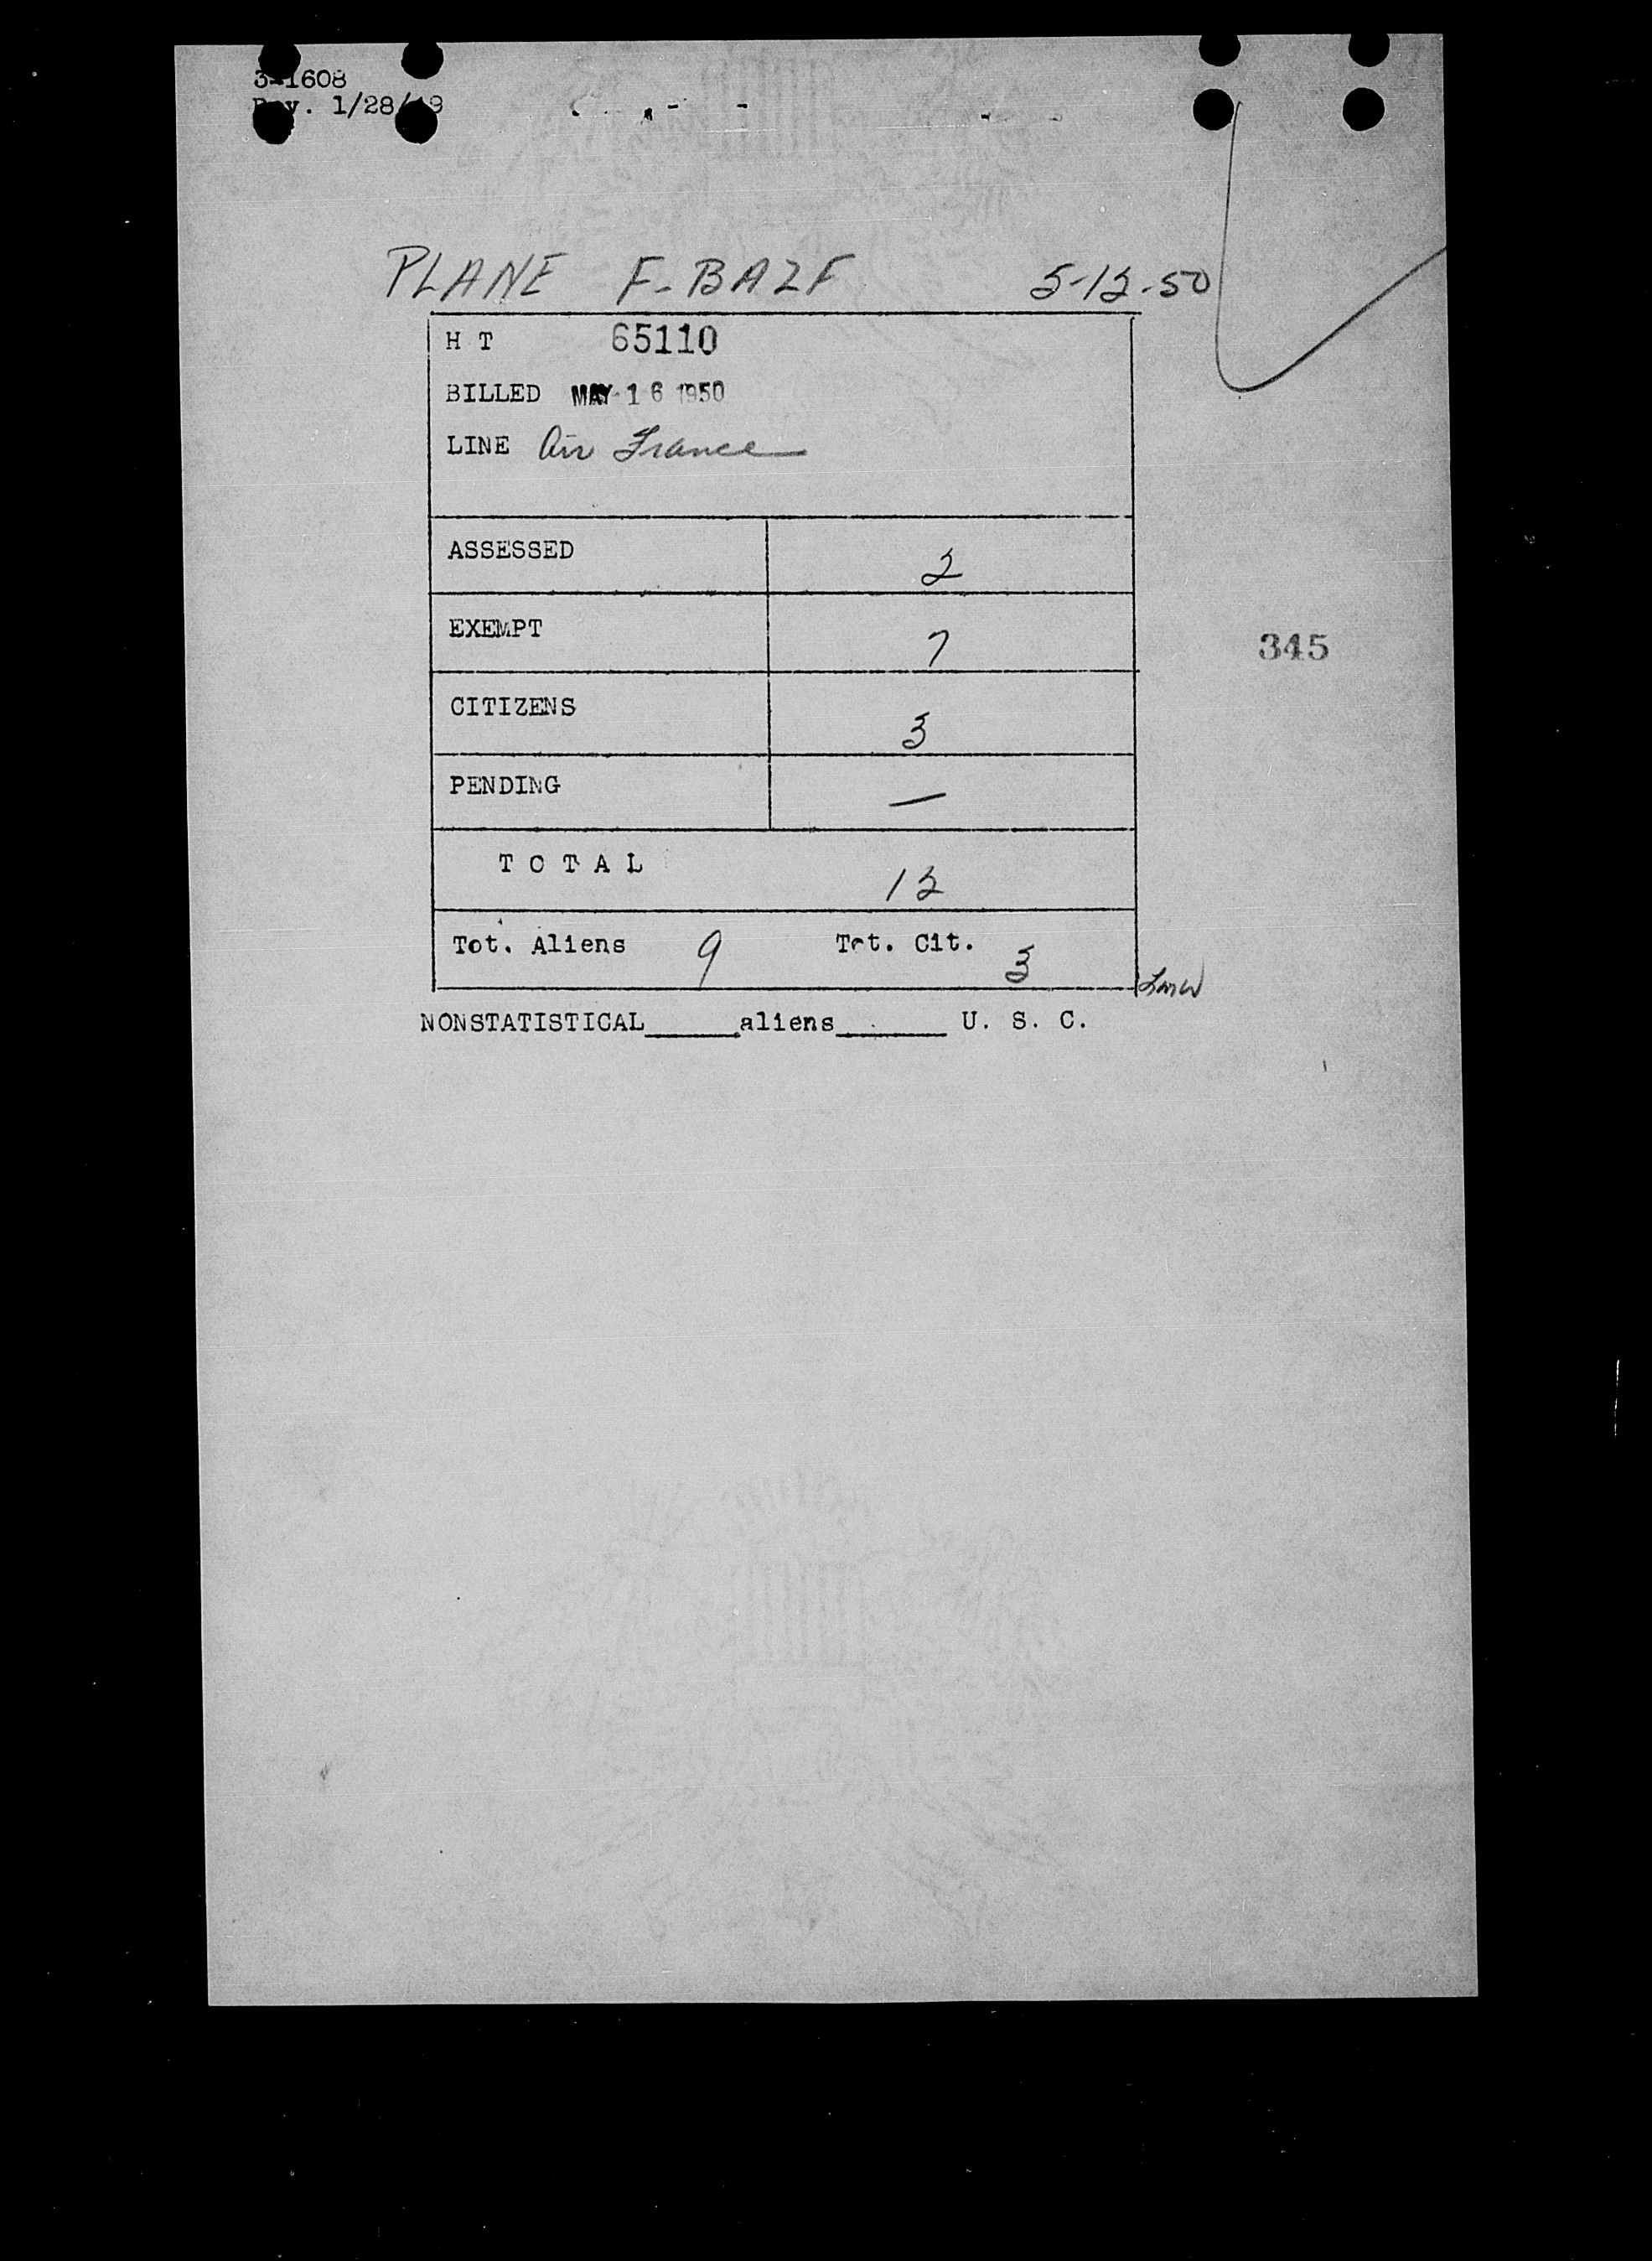 3-1608
Rev. 1/28/49
PLANE F-BAZF 5-12-50
H T 65110
BILLED MAY 16 1950
LINE Air France
ASSESSED 2
EXEMPT 7
345
CITIZENS 3
PENDING —
T O T A L 12
Tot. Aliens 9 Tot. Cit. 3
NONSTATISTICAL______aliens_______ U. S. C.